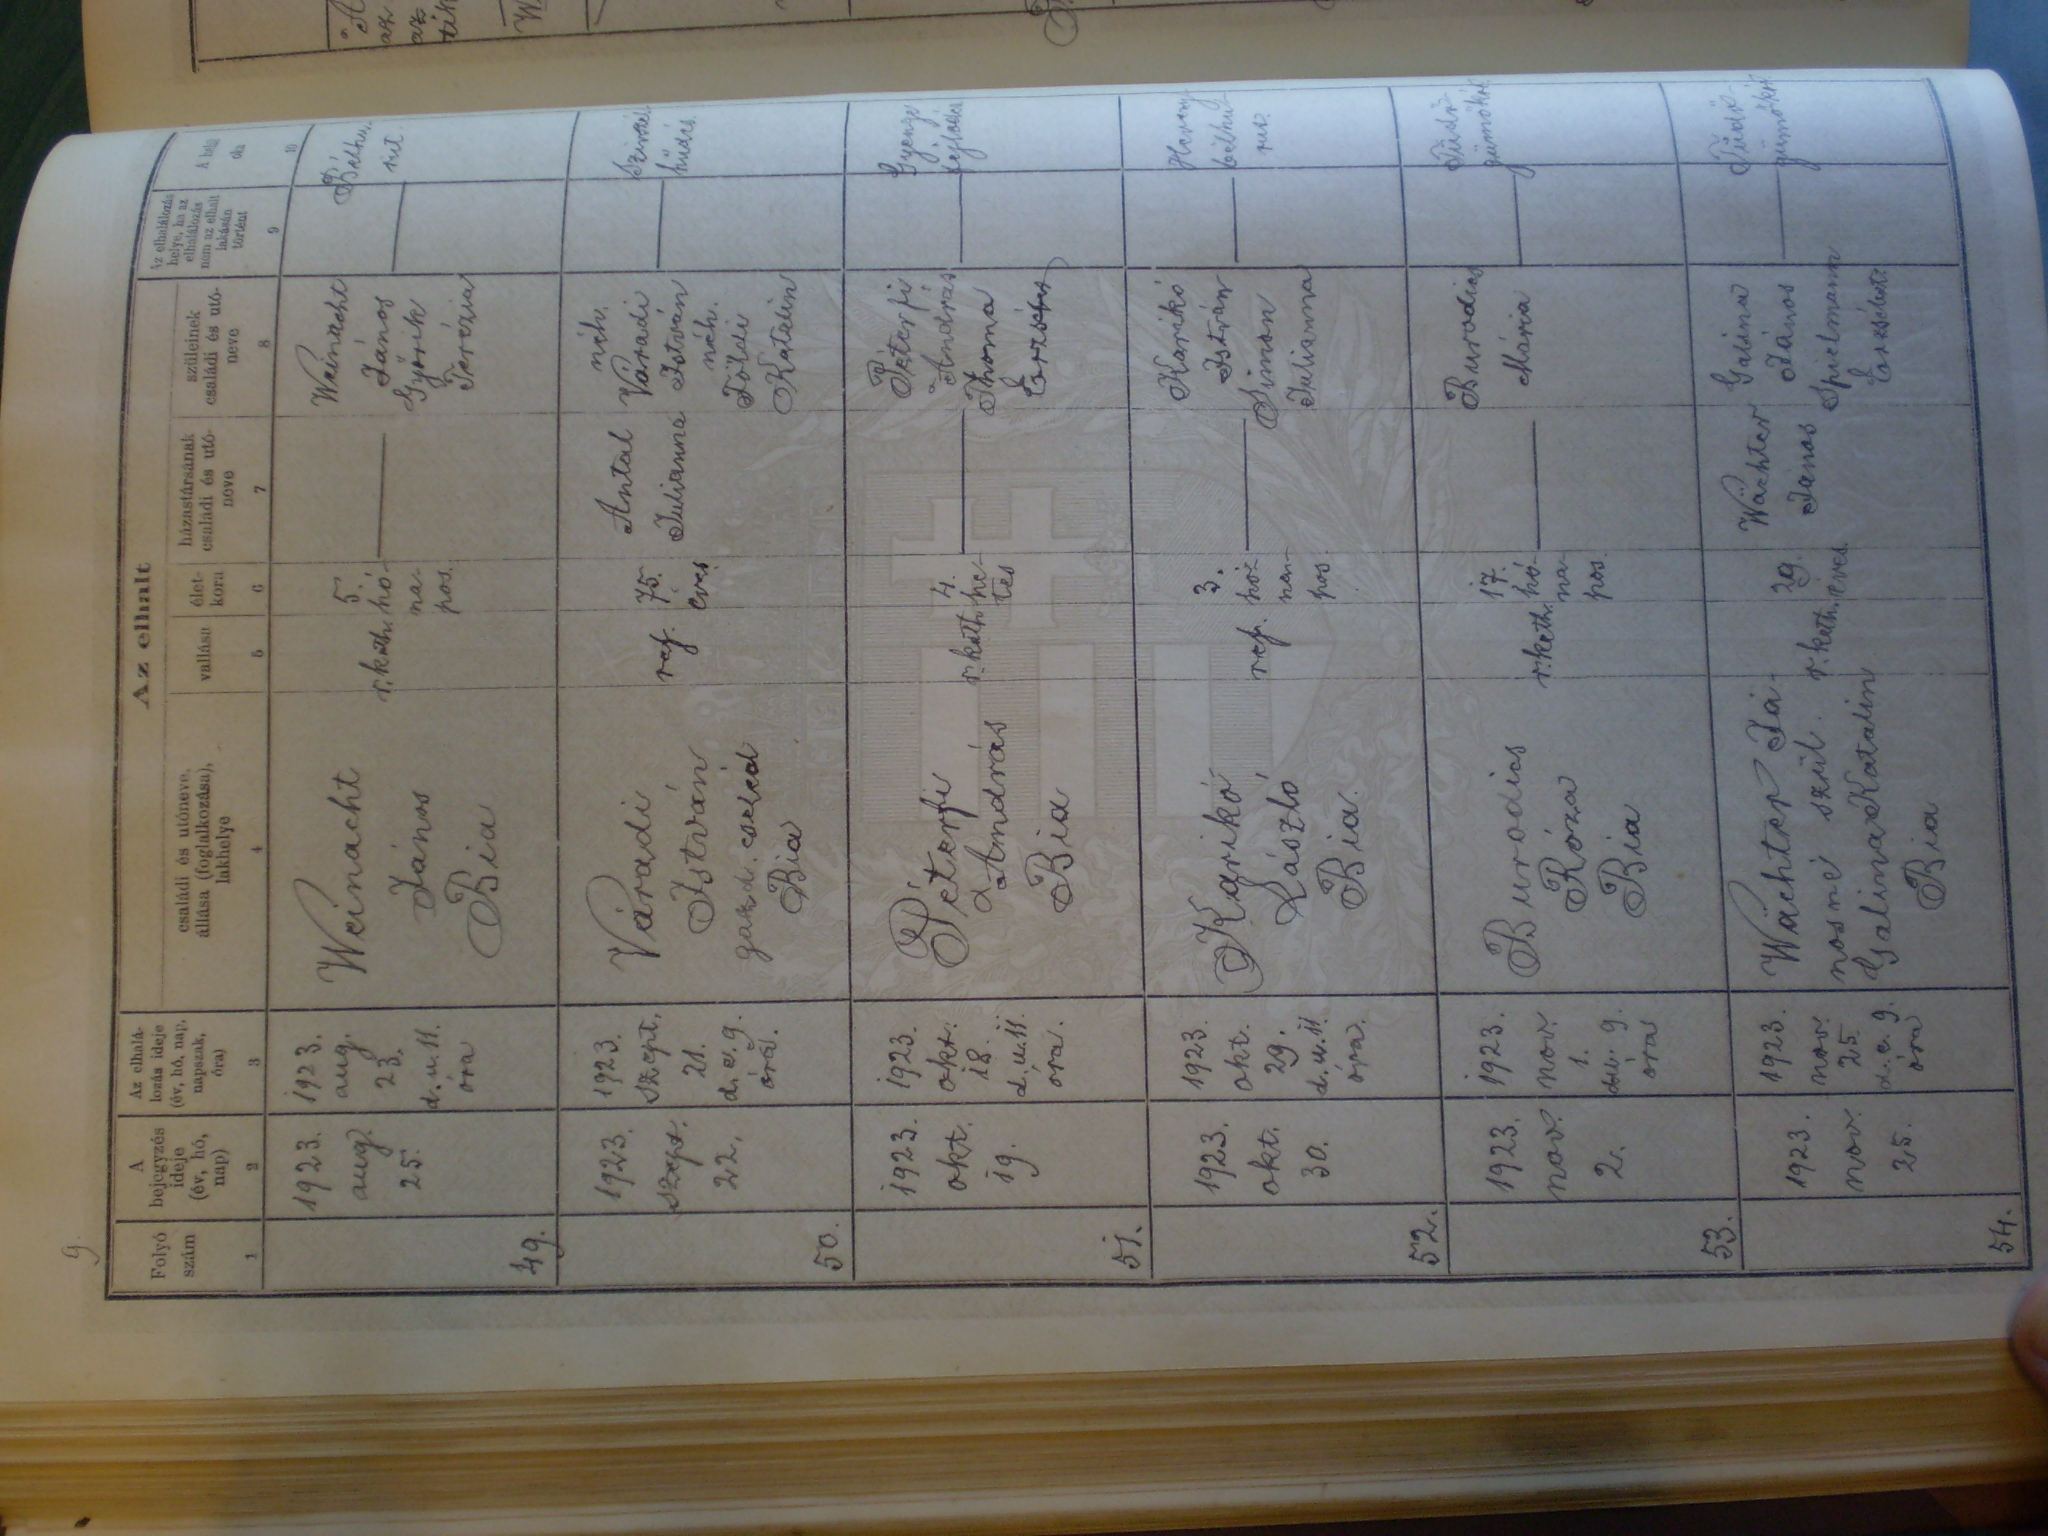 9.
Az elhalt
Folyó
szám
A
bejegyzés
ideje
(év, hó,
nap)
Az elhalá-
lozás ideje
(év, hó, nap,
napszak,
óra)
családi és utóneve,
állása (foglalkozása),
lakhelye
vallása
élet-
kora
házastársának
családi és utó-
neve
szüleinek
családi és utó-
neve
Az elhalálozás
helye, ha az
elhalálozás
nem az elhalt
lakásán
történt
A halál
oka
1
2
3
4
5
6
7
8
9
10
49.
1923.
aug.
25.
1923.
aug.
23.
d. u. 11.
óra
Weinacht
János
Bia
r. kath.
5.
hó-
na-
pos.
Weinacht
János
Györik
Terézia
Bélhu-
rut.
50.
1923.
szept.
22.
1923.
szept.
21.
d. e. 9.
óra.
Váradi
István
gazd. cseléd
Bia
ref.
75.
éves
Antal
Julianna
néh.
Váradi
István
néh.
Katalin
hűdés.
51.
1923.
okt.
19.
1923.
okt.
18.
d. u. 11.
óra.
Péterfi
András
Bia
r. kath.
4.
he-
tes
Péterfi
András
Thoma
Gyenge
fejlődés
52.
1923.
okt.
30.
1923.
okt.
29.
d. u. 11.
óra.
Karikó
László
Bia.
ref.
3.
hó-
na-
pos.
Karikó
István
Simon
Julianna
Heveny
bélhu-
rut.
53.
1923.
nov.
2.
1923.
nov.
1.
du. 9.
óra
Burodics
Róza
Bia
r. kath.
17.
hó-
na-
pos.
Burodics
Mária
Tüdő-
gümőkór
54.
1923.
nov.
25.
1923.
nov.
25.
d. e. 9.
óra
Wächter Já-
nosné szül.
Galina Katalin
Bia
r. kath.
29.
éves.
Wächter
János
Galina
János
Spielmann
Erzsébet
Tüdő-
gümőkór